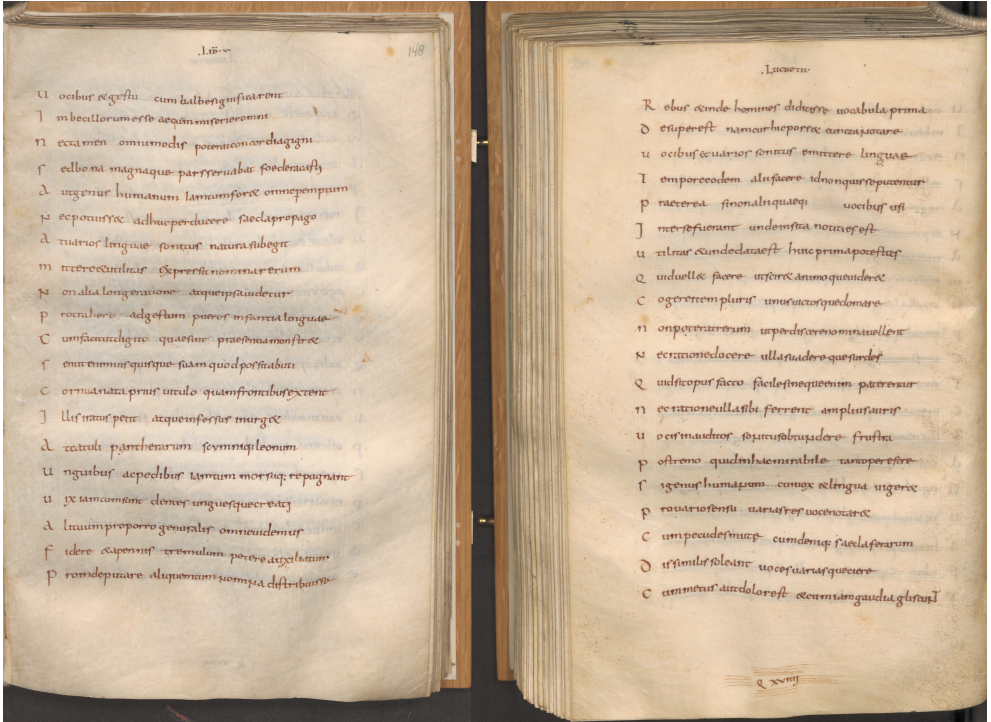 .Lib.v.
148
Uocibus &gestu cum balbesignificarent
Imbecillorumesse aequm miserieromni
Nectamen omnimodis poteratconcordiagigni
Sedbona magnaque parsservabat foederacasti
Autgenus humanum iamtumfor& omneperemptum
Necpotuiss& adhucperducere saeclapropago
Atuarios linguae sonitus natura subegit
Mittere&utilitas expressitnominarerum
Nonalialongeratione atqueipsauidetur
Protrahere adgestum pueros infantialinguae
Cumfacitutdigito quaesint praesentiamonstr&
Sentitenimuisquisque suam quodpossitabuti
Cornuanata prius uitulo quamfrontibusextent
Illisiratus petit atqueinfessus inurg&
Atcatuli pantherarum scymniqileonum
Unguibus acpedibus iamtum morsuq; repugnant
Uixiamcumsunt dentes unguesquecreati
Alituumproporro genusalis omneuidemus
Fidere &apennis tremulum petere auxiliatum
Proindeputare aliquemtum nomina distribuisse
.Lucretii.
Rebus &inde homines didicisse uocabula prima
Desuperest namcurhicposs& cunctanotare
Uocibus&uarios sonitus emittere linguae
Temporeeodem aliifacere idnonquisseputentur
Praeterea sinonaliquaeq: uocibus usi
Intersefuerant undeinsita notitiesest
Utilitas &undedataest huicprimapotestas
Quiduell& facere utscir&animoqueuider&
Cogereitempluris unusuictosquedomare
Nonpoteratrerum utperdiscerenominauellent
Necrationedocere ullasuadere quesurdis
Quidsitopus facto facilesinequeenim paterentur
Necrationeullasibi ferrent ampliusauris
Uocisinauditos sonitusobtundere frustra
Postremo quidinhacmirabile tantoperestre
Sigenus humanum cuiuox &lingua uiger&
Prouariosensu uariasres uocenotar&
Cumpecudesmute cumdeniq; saeclaferarum
Dissimilis soleant uoces uariasqueciere
Cummetus autdolorest &cumiamgaudia gliscunt
Q xviiii